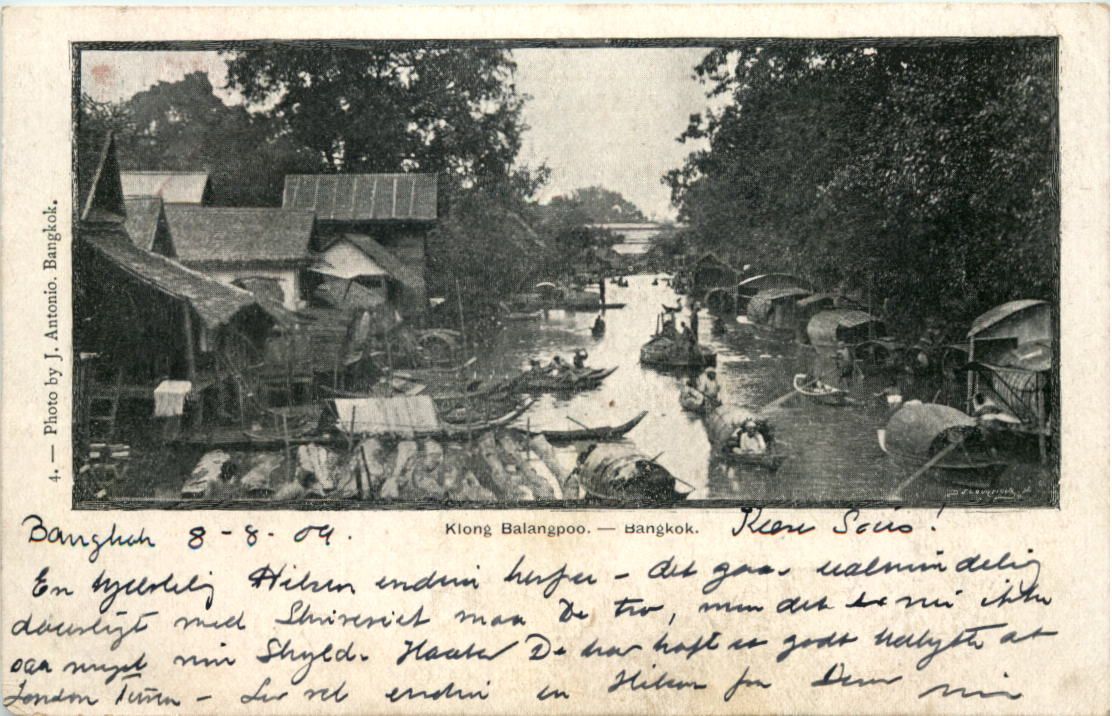 4. — Photo by J. Antonio. Bangkok.
Klong Balangpoo. — Bangkok.
Bangkok 8-8-04. Kære Søüs!
En hjertelig Hilsen endnu herfra - det gaar ualmindelig
daarligt med Skriveriet maa De tro, men det er nu ikke
saa meget min Skyld. Haaber De har haft et godt Udbytte af
London Turen - Lev vel endnu en Hilsen fra Deres